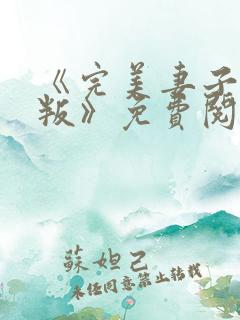 《完美妻子
版》免費閱
蘇妲己
未经同意禁止转载